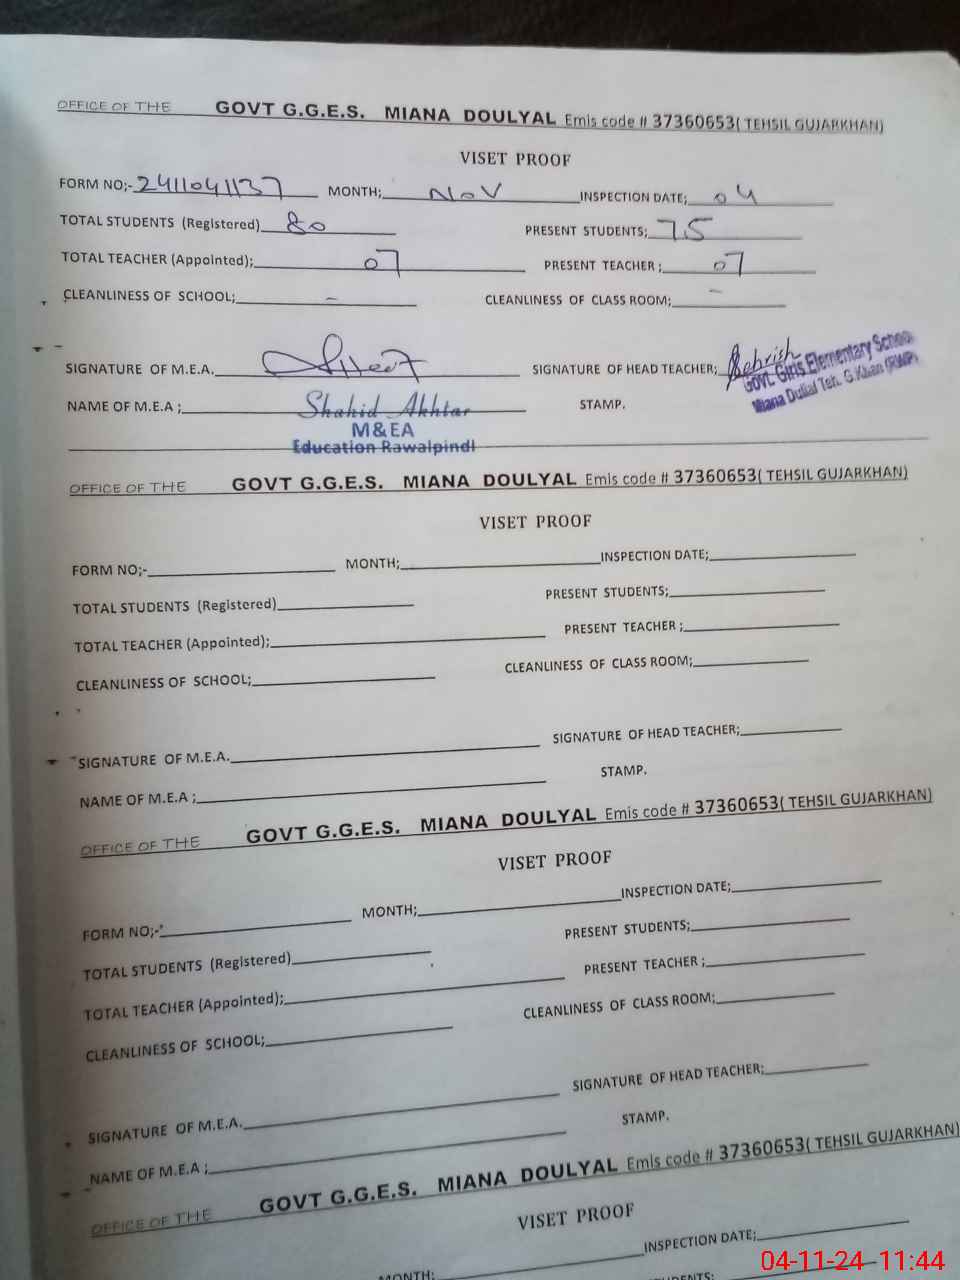 OFFICE OF THE GOVT G.G.E.S. MIANA DOULYAL Emis code # 37360653( TEHSIL GUJARKHAN)
VISET PROOF
FORM NO;- 2411041137 MONTH; NOV INSPECTION DATE; 04
TOTAL STUDENTS (Registered) 80 PRESENT STUDENTS; 75
TOTAL TEACHER (Appointed); 07 PRESENT TEACHER ; 07
CLEANLINESS OF SCHOOL; – CLEANLINESS OF CLASS ROOM; –
SIGNATURE OF M.E.A. SIGNATURE OF HEAD TEACHER; Sehrish
Govt. Girls Elementary School
Miana Dullal Teh. G.Khan (RWP)
NAME OF M.E.A ; Shahid Akhtar STAMP.
M&EA
Education Rawalpindi
OFFICE OF THE GOVT G.G.E.S. MIANA DOULYAL Emis code # 37360653( TEHSIL GUJARKHAN)
VISET PROOF
FORM NO;- MONTH; INSPECTION DATE;
TOTAL STUDENTS (Registered) PRESENT STUDENTS;
TOTAL TEACHER (Appointed); PRESENT TEACHER ;
CLEANLINESS OF SCHOOL; CLEANLINESS OF CLASS ROOM;
SIGNATURE OF M.E.A. SIGNATURE OF HEAD TEACHER;
NAME OF M.E.A ; STAMP.
OFFICE OF THE GOVT G.G.E.S. MIANA DOULYAL Emis code # 37360653( TEHSIL GUJARKHAN)
VISET PROOF
FORM NO;- MONTH; INSPECTION DATE;
TOTAL STUDENTS (Registered) PRESENT STUDENTS;
TOTAL TEACHER (Appointed); PRESENT TEACHER ;
CLEANLINESS OF SCHOOL; CLEANLINESS OF CLASS ROOM;
SIGNATURE OF M.E.A. SIGNATURE OF HEAD TEACHER;
NAME OF M.E.A ; STAMP.
OFFICE OF THE GOVT G.G.E.S. MIANA DOULYAL Emis code # 37360653( TEHSIL GUJARKHAN)
VISET PROOF
MONTH; INSPECTION DATE;
04-11-24 11:44